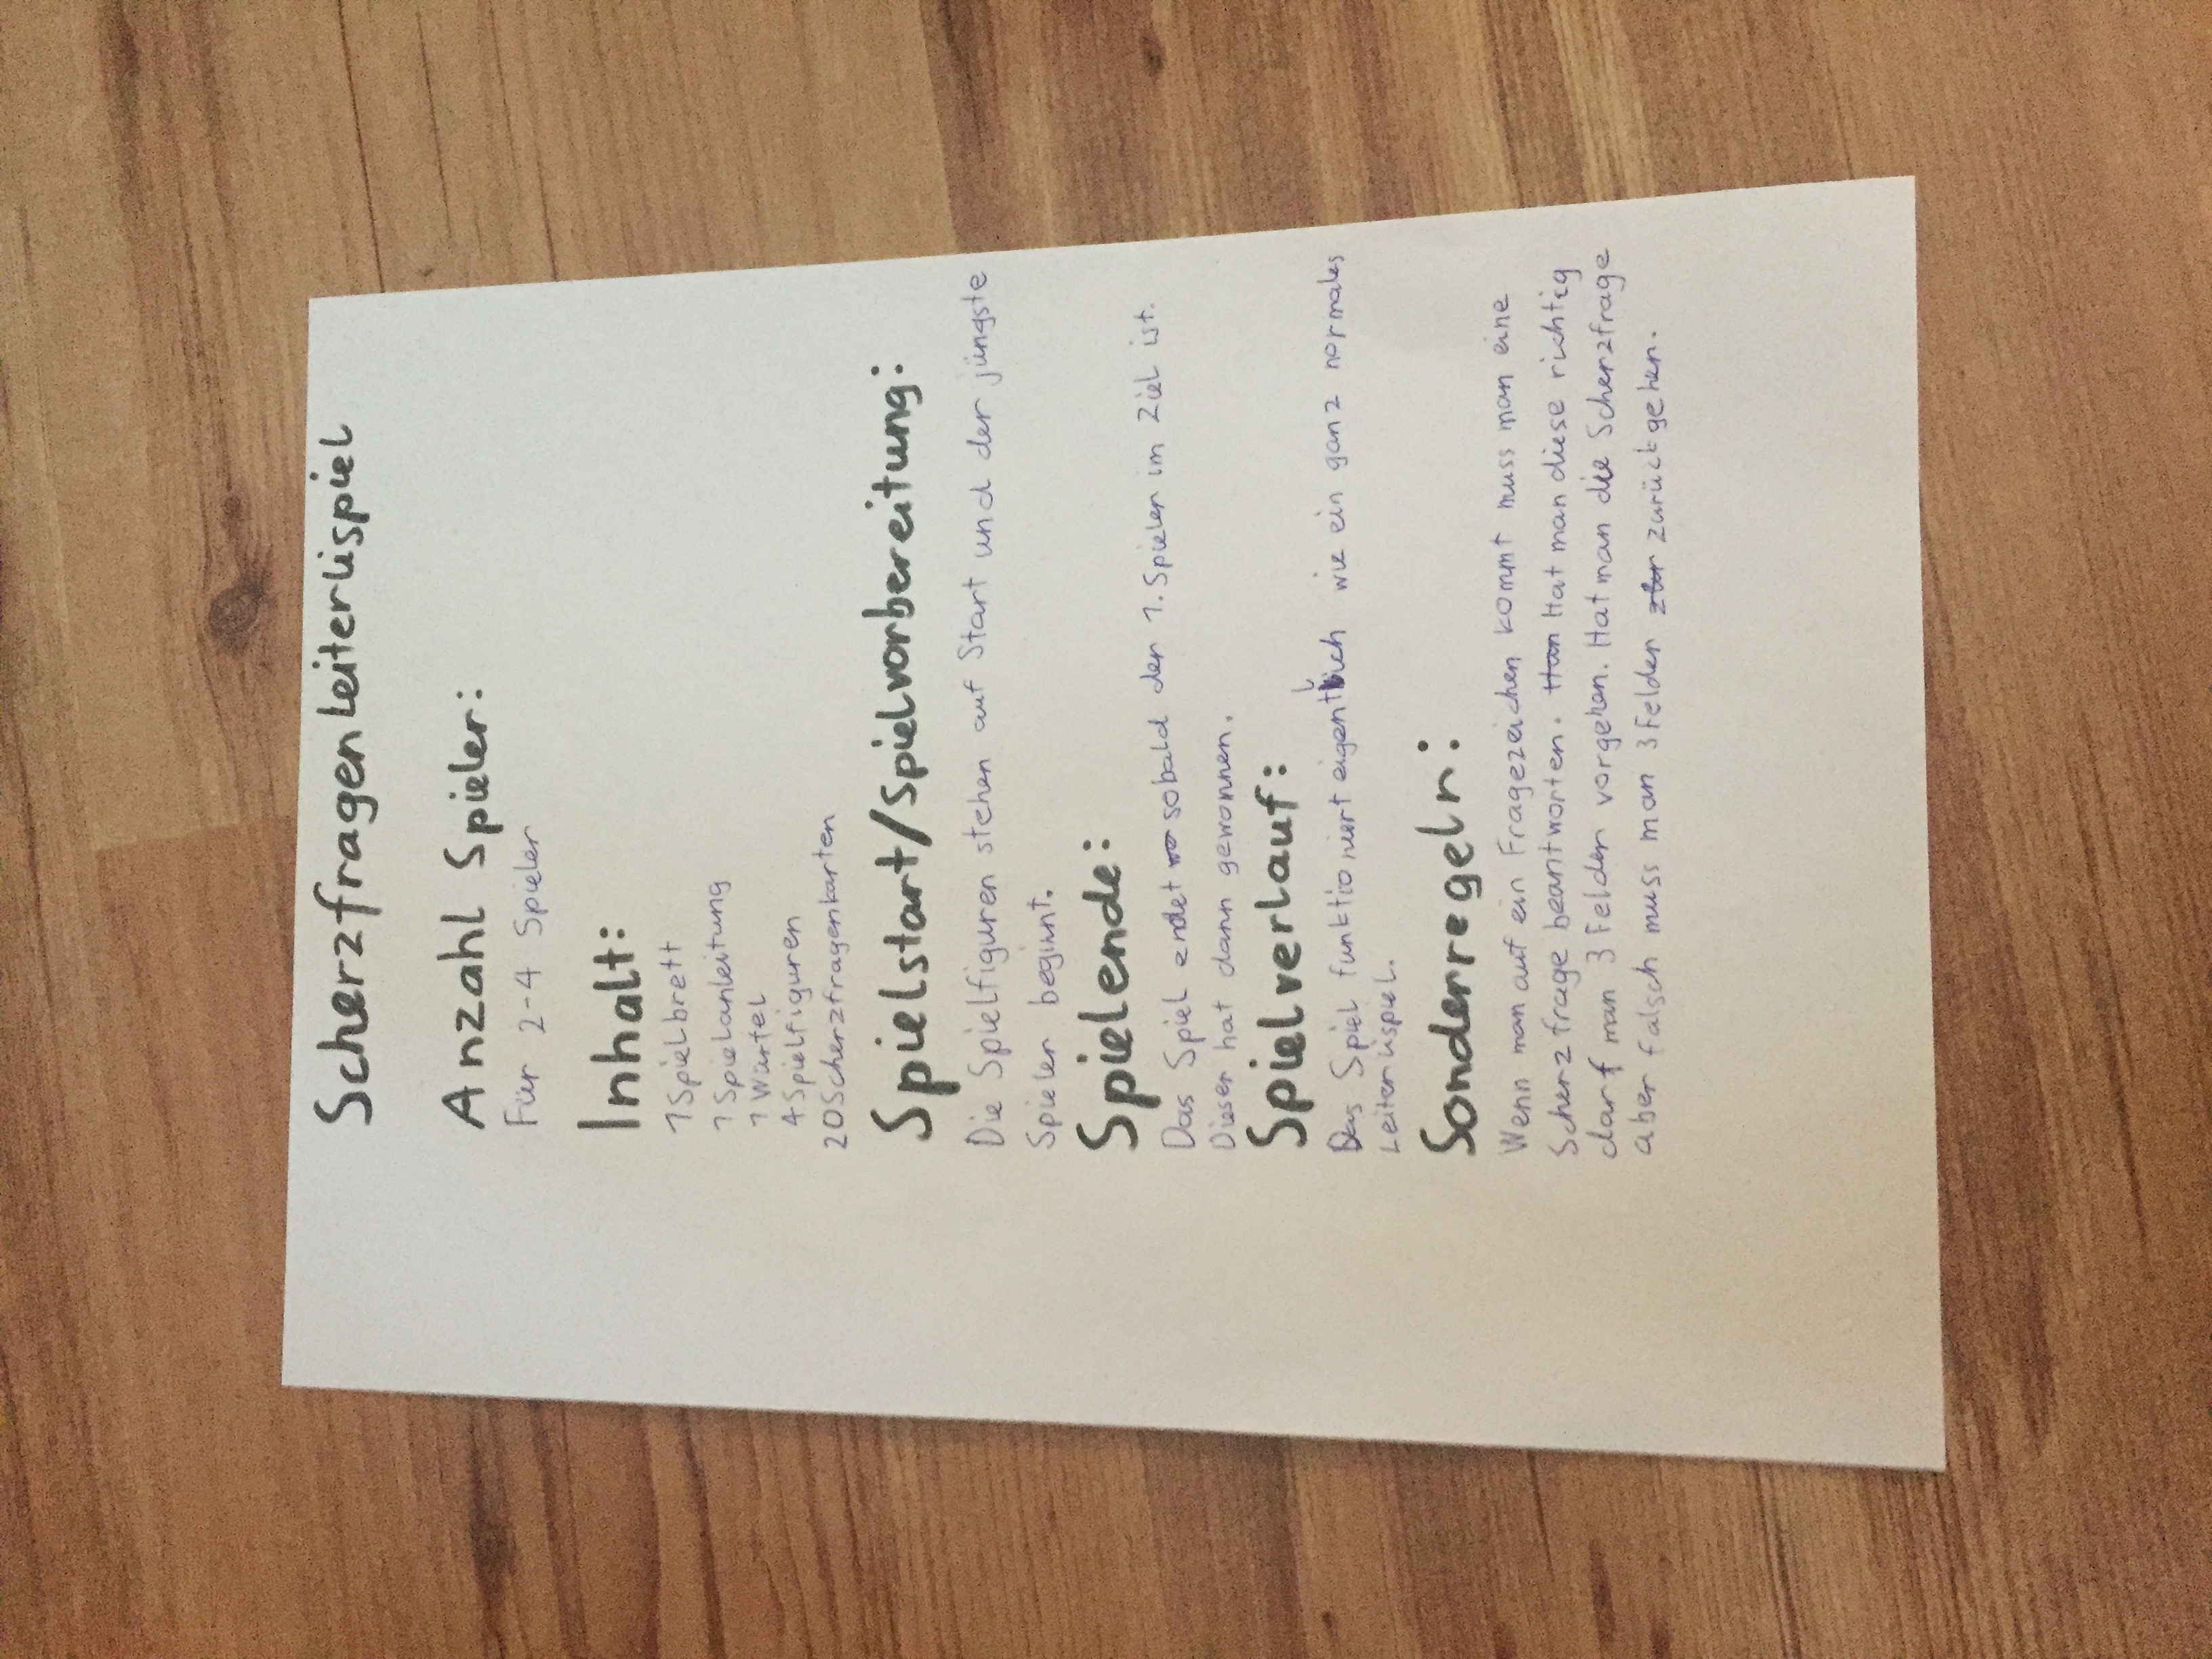 Scherzfragen Leiterlispiel
Anzahl Spieler:
Für 2-4 Spieler
Inhalt:
1 Spielbrett
1 Spielanleitung
1 Würfel
4 Spielfiguren
20 Scherzfragenkarten
Spielstart/Spielvorbereitung:
Die Spielfiguren stehen auf Start und der jüngste
Spieler beginnt.
Spielende:
Das Spiel endet sobald der 1. Spieler im Ziel ist.
Dieser hat dann gewonnen.
Spielverlauf:
Das Spiel funktioniert eigentlich wie ein ganz normales
Leiterlispiel.
Sonderregeln:
Wenn man auf ein Fragezeichen kommt muss man eine
Scherzfrage beantworten. Hat man diese richtig
darf man 3 Felder vorgehen. Hat man die Scherzfrage
aber falsch muss man 3 Felder zurückgehen.